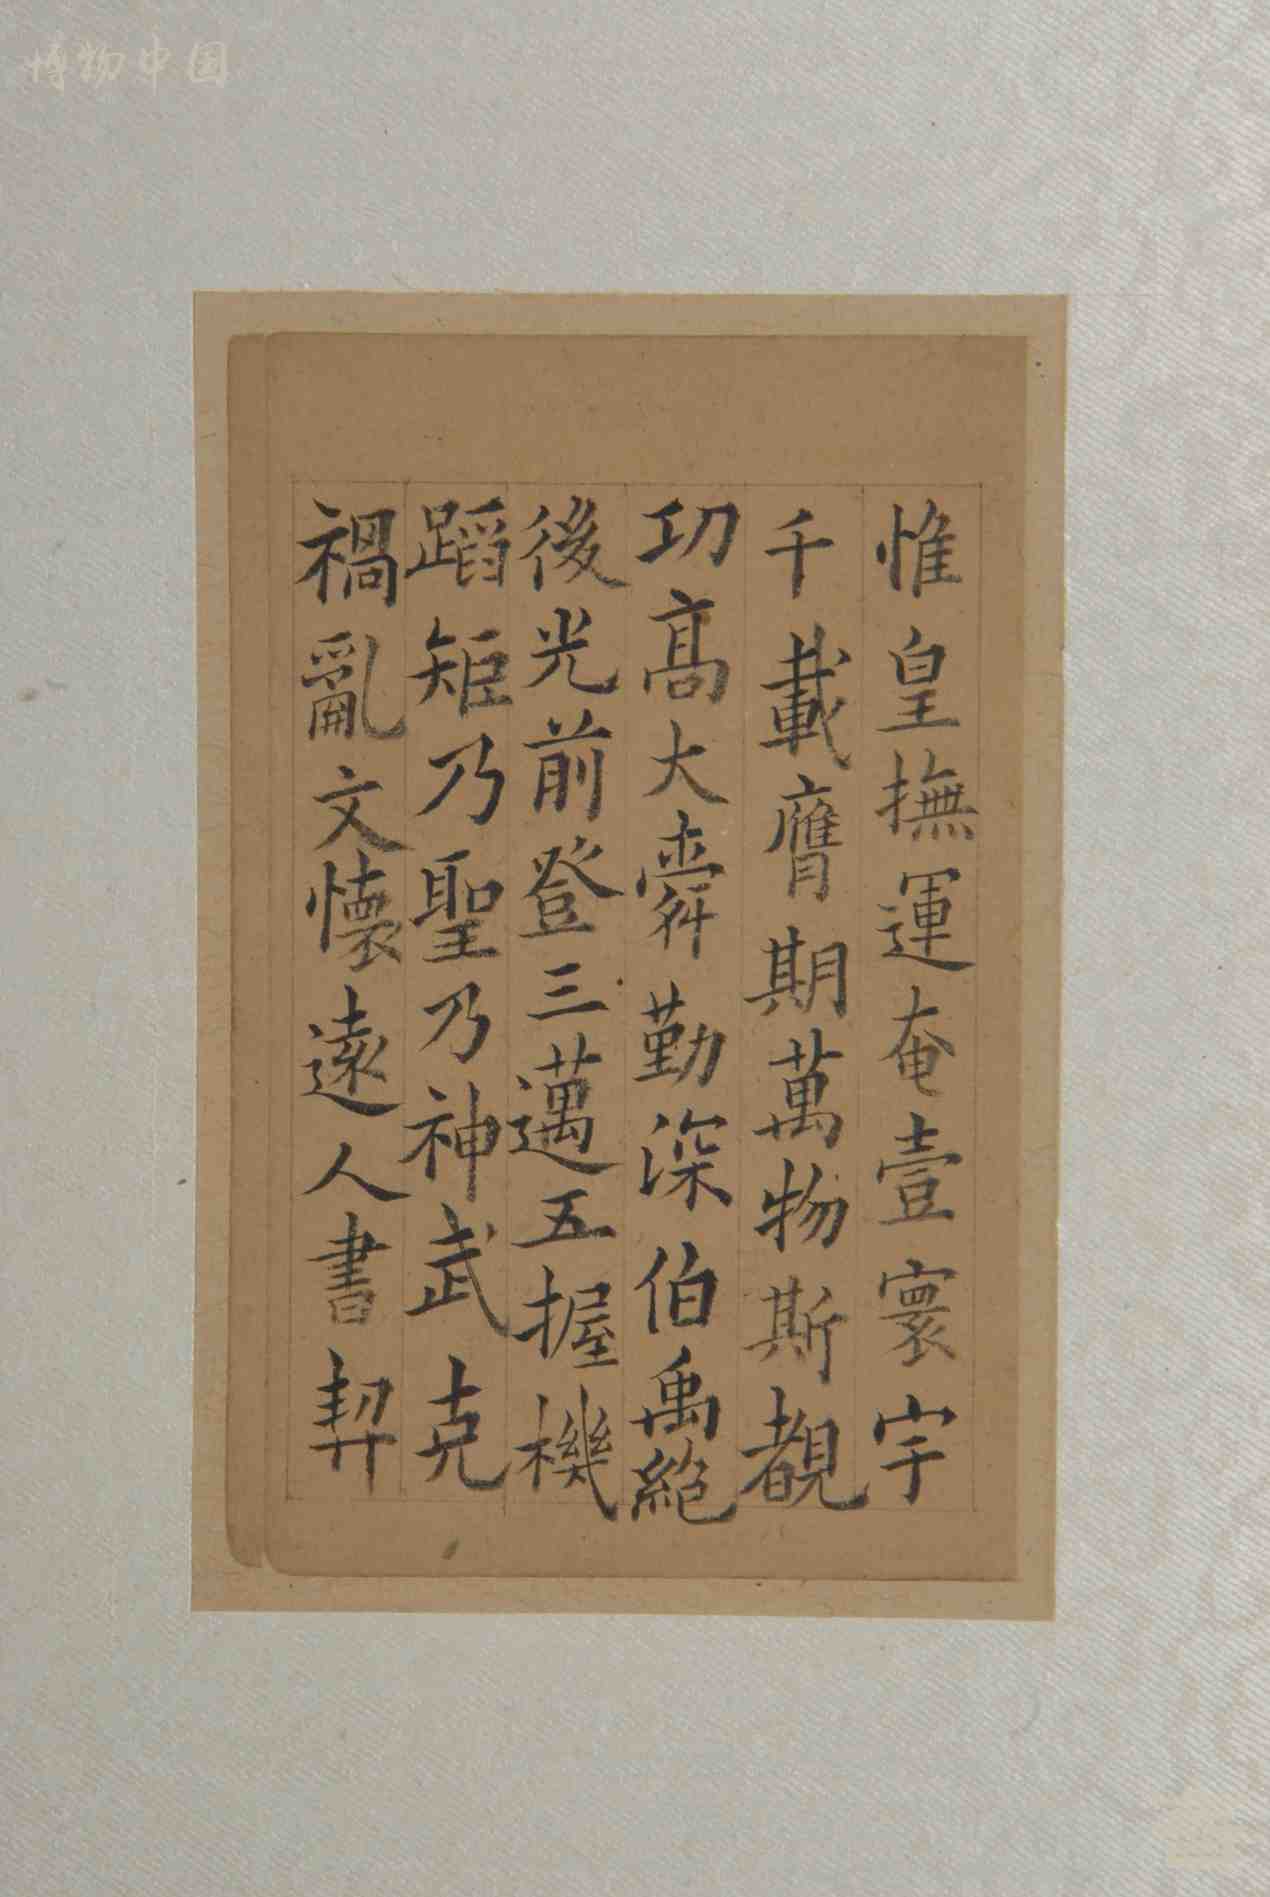 博物中国
惟皇撫運奄壹寰宇
千載膺期萬物斯覩
功高大舜勤深伯禹絶
後光前登三邁五握機
蹈矩乃聖乃神武克
禍亂文懷遠人書契